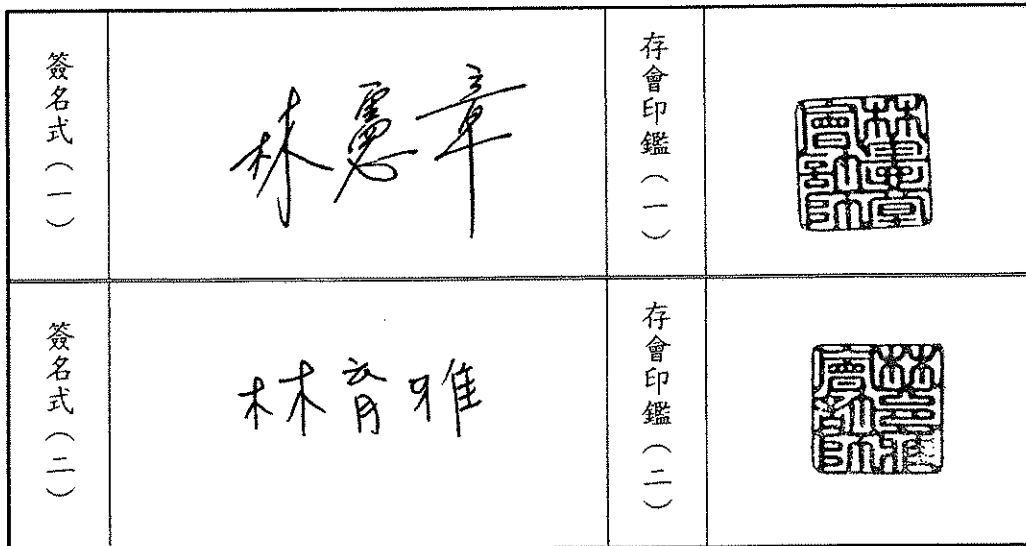 簽名式(一)
林憲章
存會印鑑(一)
林憲章會計師
簽名式(二)
林育雅
存會印鑑(二)
林育雅會計師